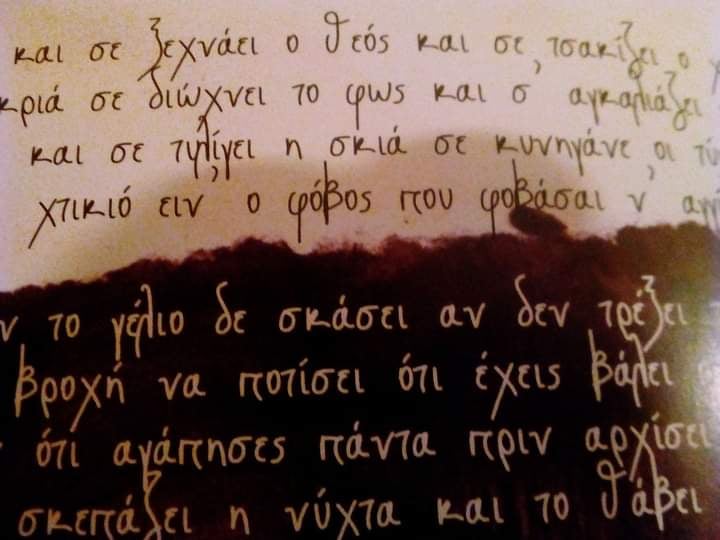 και σε ξεχνάει ο θεός και σε τσακίζει ο
κριά σε διώχνει το φως και σ αγκαλιάζει
και σε τυλίγει η σκιά σε κυνηγάνε οι
χτικιό ειν ο φόβος που φοβάσαι ν
το γέλιο δε σκάσει αν δεν τρέξει
βροχή να ποτίσει ότι έχεις βάλει
ότι αγάπησες πάντα πριν αρχίσει
σκεπάζει η νύχτα και το θάβει